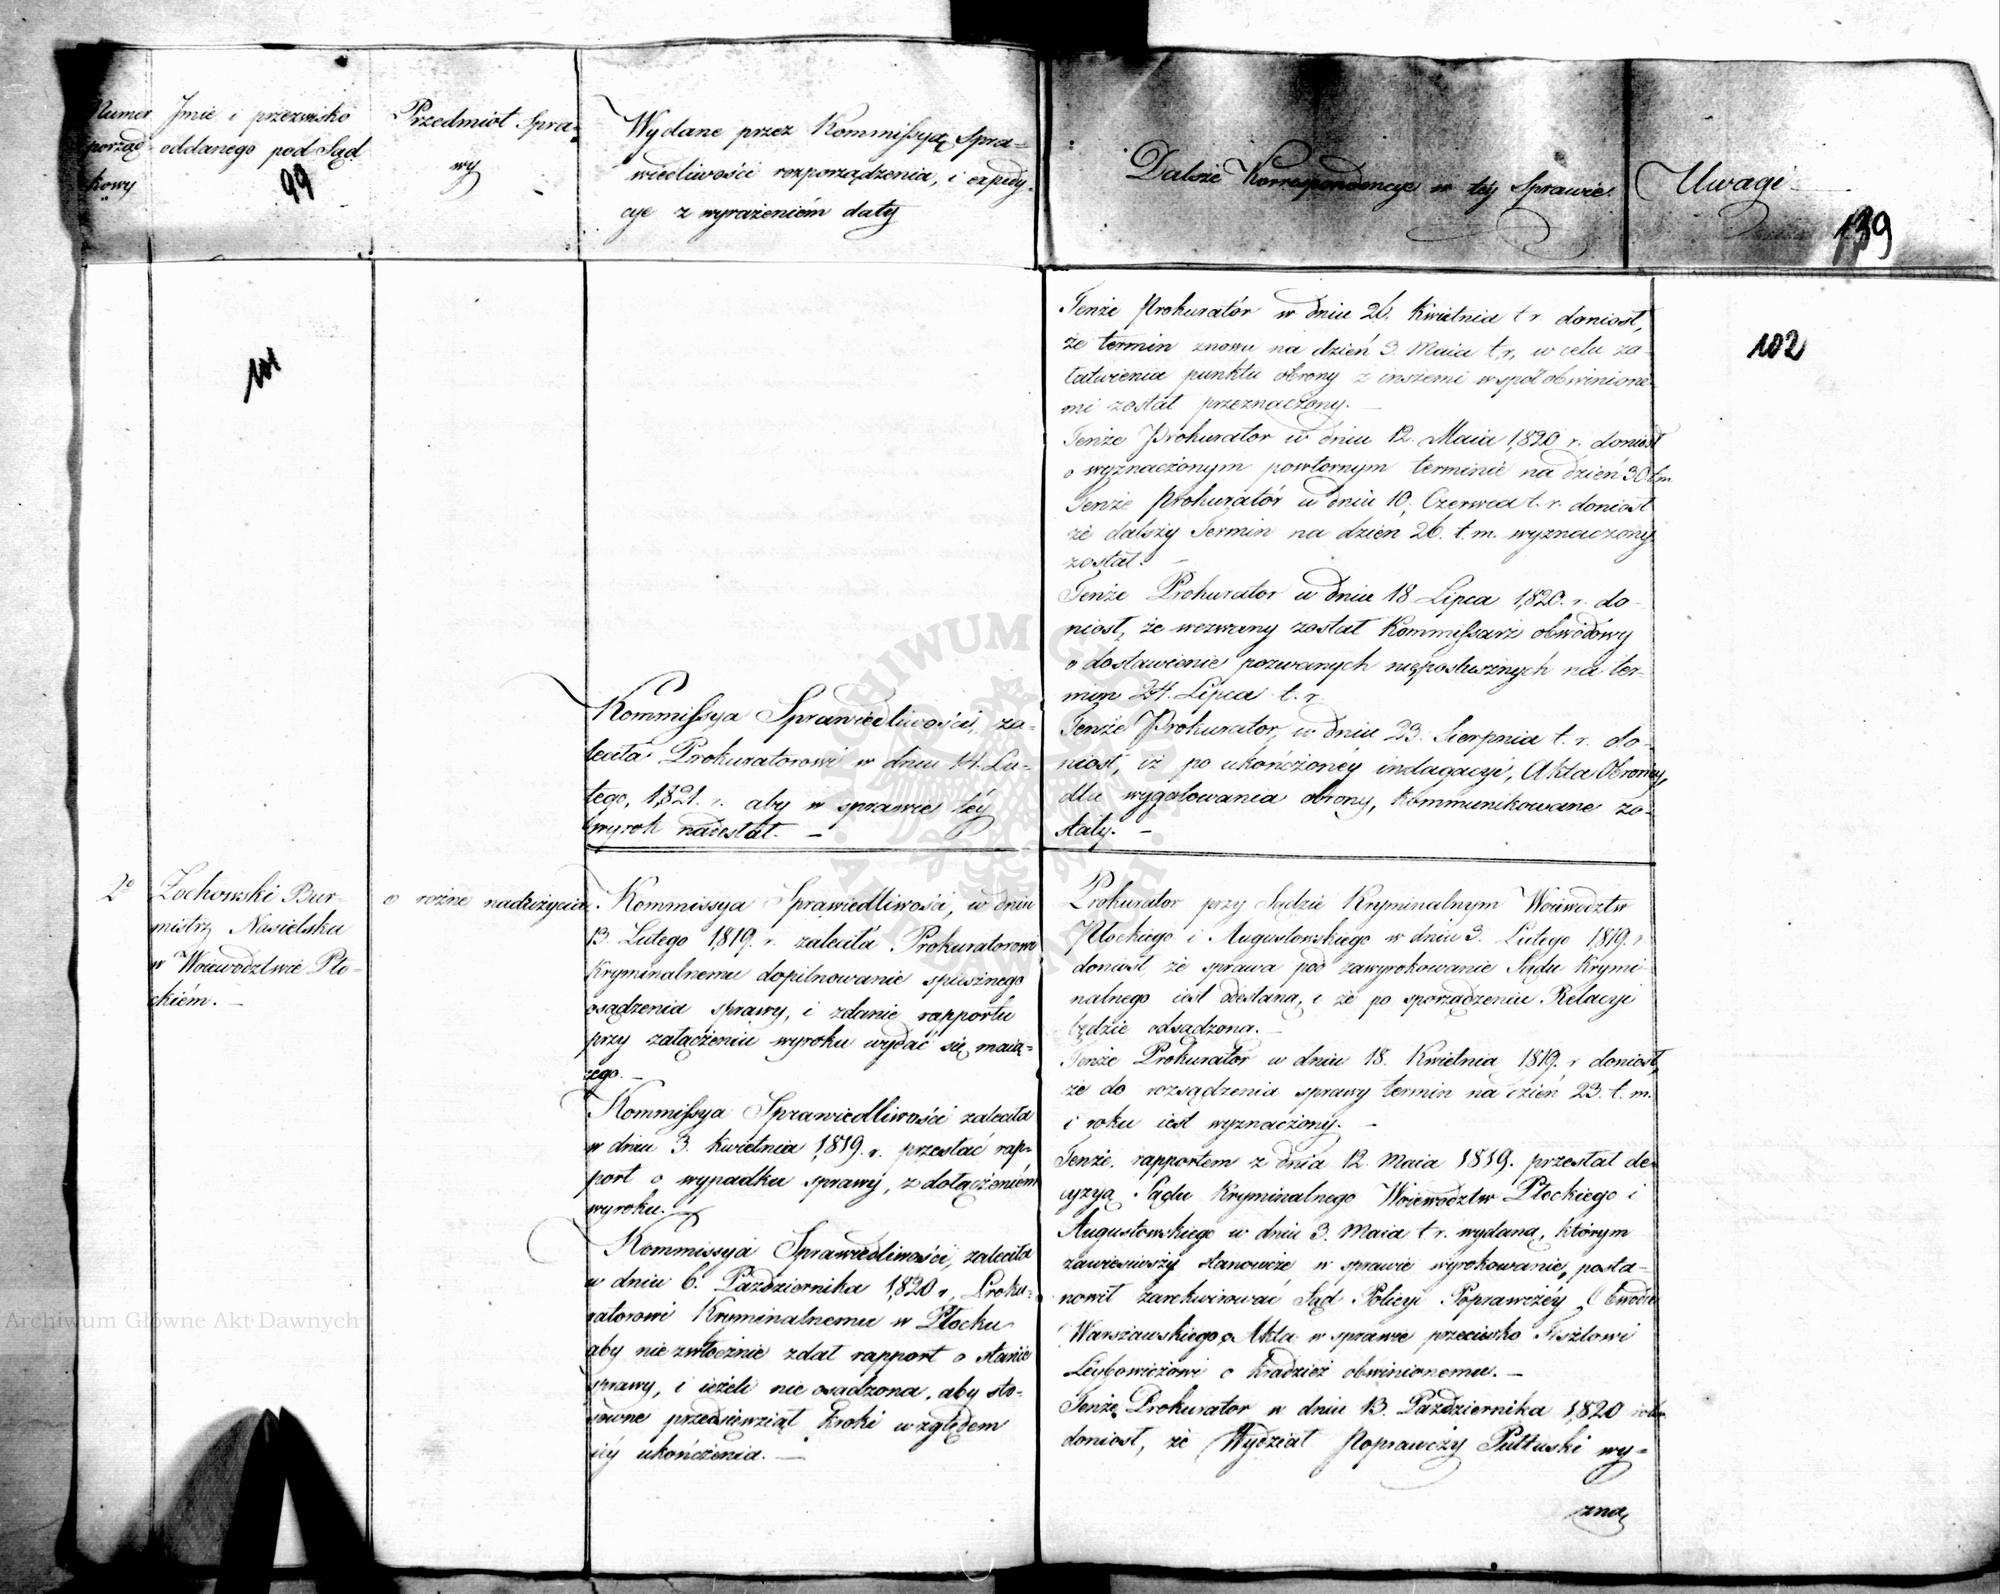 Numer
porząd-
kowy
Jmie i przezwisko
oddanego pod Sąd
99
Przedmiot Spra-
wy
Wydane przez Kommissyą Spra-
wiedliwości rozporządzenia, i expedy-
cye z wyrażeniem daty
Dalsze Korrespondencye w téy Sprawie.
Uwagi
139
101
102
Kommissya Sprawiedliwości, za-
leciła Prokuratorowi w dniu 14. Lu-
tego, 1821. r. aby w sprawie téy
wyrok nadesłał. —
Tenże Prokuratór w dniu 26. Kwietnia t. r. doniosł,
że termin znowu na dzień 3. Maia t. r. w celu za-
łatwienia punktu obrony z inszemi współobwinione-
mi został przeznaczony. —
Tenże Prokurator w dniu 12. Maia 1820 r. doniosł
o wyznaczonym powtornym terminie na dzień 30 t.m.
Tenże Prokuratór w dniu 10. Czerwca t. r. doniosł
że dalszy Termin na dzień 26. t. m. wyznaczony
został. —
Tenże Prokurator w dniu 18. Lipca 1820. r. do-
niosł, że wezwany został Kommissarz obwodowy
o dostawienie pozwanych nieposłusznych na ter-
min 24. Lipca t. r.
Tenże Prokurator w dniu 23. Sierpnia t. r. do-
niosł, iż po ukończonéy indagacyi, Akta Obrońcy,
dla wygotowania obrony, kommunikowane zo-
stały. —
2o
Żochowski Bur-
mistrz Nasielska
w Woiewództwie Pło-
ckiém. —
o rożne nadużycia.
Kommissya Sprawiedliwości, w dniu
13. Lutego 1819. r. zaleciła Prokuratorowi
Kryminalnemu dopilnowanie spiesznego
osądzenia sprawy, i zdanie rapportu
przy załączeniu wyroku wydać się maią-
cego. —
Kommissya Sprawiedliwości zaleciła
w dniu 3. Kwietnia 1819. r. przesłać rap-
port o wypadku sprawy, z dołączeniem
wyroku. —
Kommissya Sprawiedliwości, zaleciła
w dniu 6. Października 1820 r. Proku-
ratorowi Kryminalnemu w Płocku
aby niezwłocznie zdał rapport o stanie
sprawy, i ieżeli nie osądzona, aby sto-
sowne przedsiewziął kroki względem
iéy ukończenia. —
Prokurator przy Sądzie Kryminalnym Woiewództw
Płockiego i Augustowskiego w dniu 3. Lutego 1819. r.
doniosł, że sprawa pod zawyrokowanie Sądu Krymi-
nalnego iest odesłana, i że po sporządzeniu Relacyi
będzie odsądzona. —
Tenże Prokuratór w dniu 18. Kwietnia 1819. r doniosł,
że do rozsądzenia sprawy termin na dzień 23. t. m.
i roku iest wyznaczony. —
Tenże, rapportem z dnia 12. Maia 1819. przesłał de-
cyzyą Sądu Kryminalnego Woiewództw Płockiego i
Augustowskiego w dniu 3. Maia t r. wydaną, którym
zawiesiwszy stanowcze w sprawie wyrokowanie, posta-
nowił zarekwirować Sąd Policyi Poprawczéy Obwodu
Warszawskiego o Akta w sprawie przeciwko
Leybowiczowi o kradzież obwinionemu. —
Tenże Prokurator w dniu 13. Października 1820 roku
doniosł, że Wydział Poprawczy Pułtuski wy-
zna
ARCHIWUM GŁÓWNE AKT DAWNYCH
Archiwum Główne Akt Dawnych